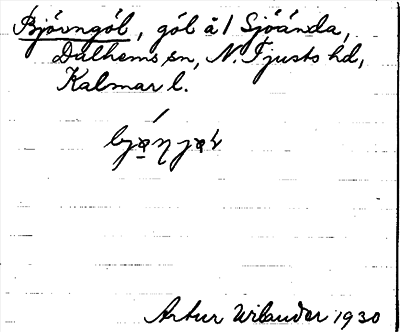 Björngöl, göl å 1 Sjöända,
Dalhems sn, N. Tjusts hd,
Kalmar l.
Artur Wilander 1930